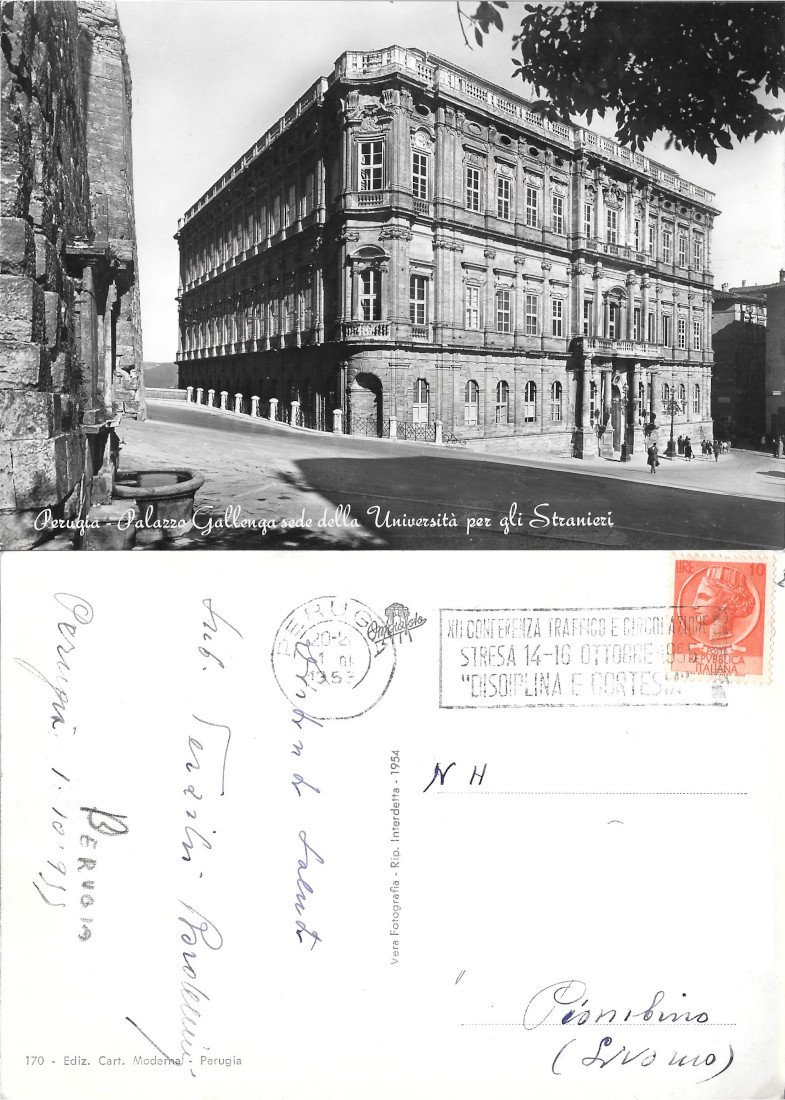 Perugia - Palazzo Gallenga sede della Università per gli Stranieri
PERUGIA
20-21
1953
XII CONFERENZA TRAFFICO E CIRCOLAZIONE
STRESA 14-16 OTTOBRE
"DISCIPLINA E CORTESIA"
LIRE 10
POSTE
REPVBBLICA
ITALIANA
Perugia 1.10.955
PERUGIA
Saluti
Vera Fotografia - Rip. Interdetta - 1954
N H
Piombino
(Livorno)
170 - Ediz. Cart. Moderna - Perugia